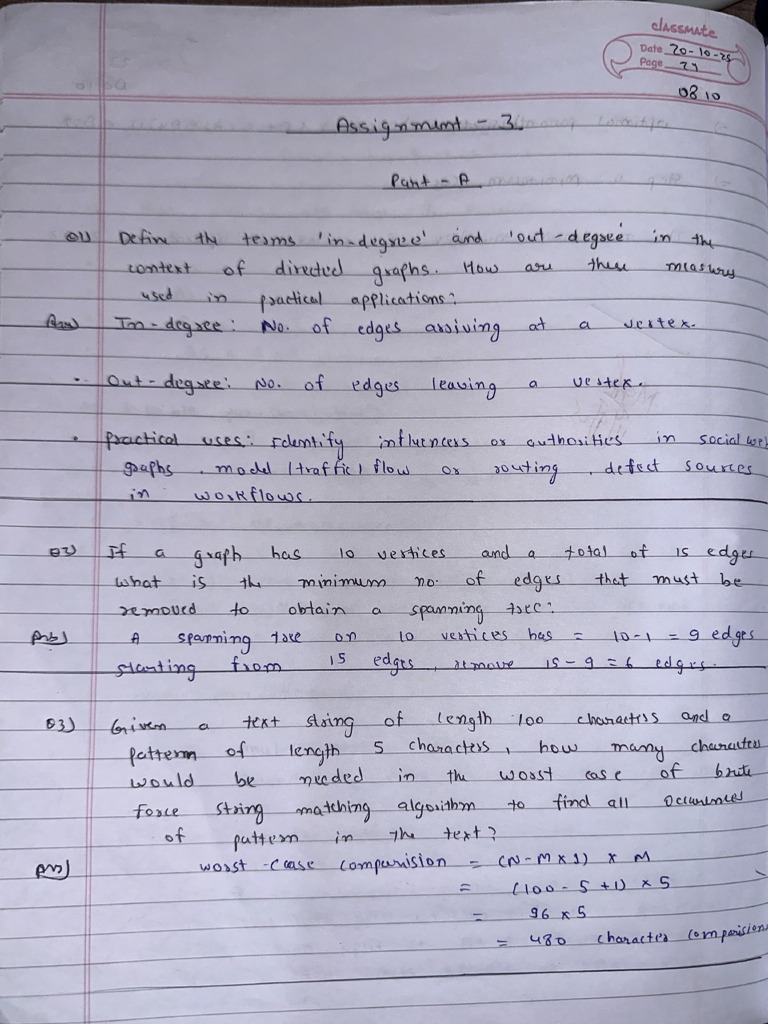 classmate
Date 20-10-25
Page 24
08 10
Assignment - 3.
Part - A
Q1) Define the terms 'in-degree' and 'out-degree' in the
context of directed graphs. How are these measures
used in practical applications?
Ans) In-degree: No. of edges arriving at a vertex.
• Out-degree: No. of edges leaving a vertex.
• practical uses: Identify influencers or authorities in social web
graphs, model (traffic) flow or routing, defect sources
in workflows.
Q2) If a graph has 10 vertices and a total of 15 edges
what is the minimum no. of edges that must be
removed to obtain a spanning tree?
Ans) A spanning tree on 10 vertices has = 10-1 = 9 edges
starting from 15 edges, remove 15-9 = 6 edges.
Q3) Given a text string of length 100 characters and a
pattern of length 5 characters, how many characters
would be needed in the worst case of brute
force string matching algorithm to find all occurences
of pattern in the text?
Ans) worst-case comparision = (N-M×1) × M
= (100 - 5 +1) × 5
= 96 × 5
= 480 character comparision